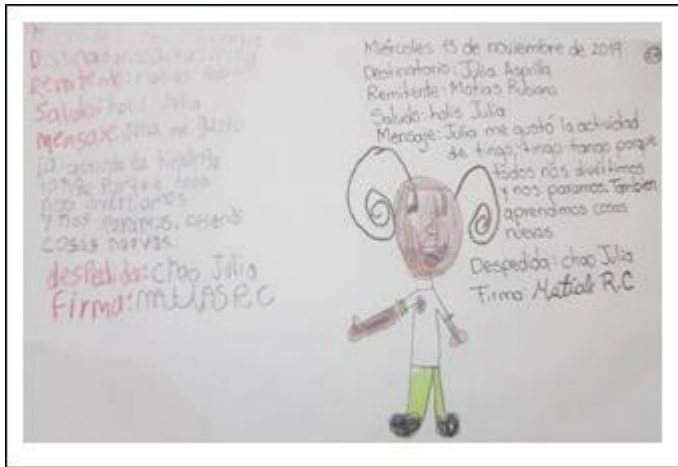 Remitente:
Saludo: holis Julia
mensaje: Julia me gusto
tango porque todo
nos divertimos
y nos paramos,
cosas nuevas
despedida: chao Julia
firma: R.C
Miércoles 13 de noviembre de 2019
Destinatario: Julia Asprilla
Remitente: Matias Rubiano
Saludo: holis Julia
Mensaje: Julia me gustó la actividad
de tingo, tingo tango porque
todos nos divertimos
y nos paramos. Tambien
aprendimos cosas
nuevas
Despedida: chao Julia
Firma: R.C